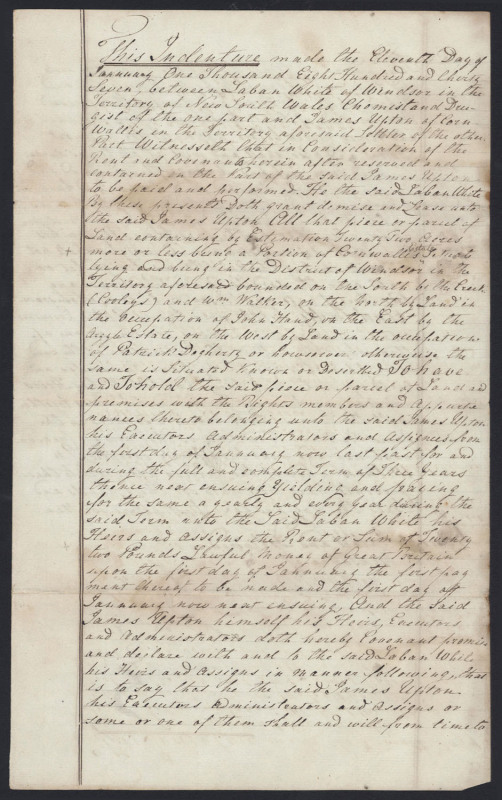 This Indenture made the Eleventh Day of
Jannuary One Thousand Eight Hundred and thirty
Seven, between Laban White of Windsor in the
Territory of New South Wales Chemist and Dru-
gist of the one part and James Upton of Corn
Wallis in the Territory aforesaid Settler of the other
Part Witnesseth that in Consideration of the
Rent and Covenants herein after reserved and
contained on the Part of the said James Upton
to be paid and performed. He the said Laban White
By these presents Doth grant demise and Lease unto
the said James Upton All that piece or parcel of
Land containing by Estimation Twenty Two Acres
more or less being a Portion of Cornwallis
lying and being in the District of Windsor in the
Territory aforesaid bounded on the South by the Creek
(Cooleys) and Wm Walker, on the North by Land in
the Occupation of John Hand, on the East by the
Estate, on the West by Land in the occupation
of Patrick Dogherty or howsoever otherwise the
same is Situated Known or Described To have
and To hold the said piece or parcel of Land and
premises with the Rights members and Appurte
nances thereto belonging unto the said James Upton
his Executors Administrators and Assignes from
the first day of Jannuary now last past for and
during the full and complete Term of Three Years
thence next ensuing Yielding and paying
for the same yearly and every year during the
said Term unto the Said Laban White his
Heirs and Assigns the Rent or Sum of Twenty
two Pounds Lawful Money of Great Britain
upon the first day of Jahnuary the first pay
ment thereof to be made and the first day off
Jannuary now next ensuing, And the said
James Upton himself his Heirs, Executors
and Administrators doth hereby Covenant promise
and declare with and to the said Laban White
his Heirs and Assigns in manner following, that
is to say that he the said James Upton
his Executors Administrators and Assigns or
some or one of them shall and will from time to